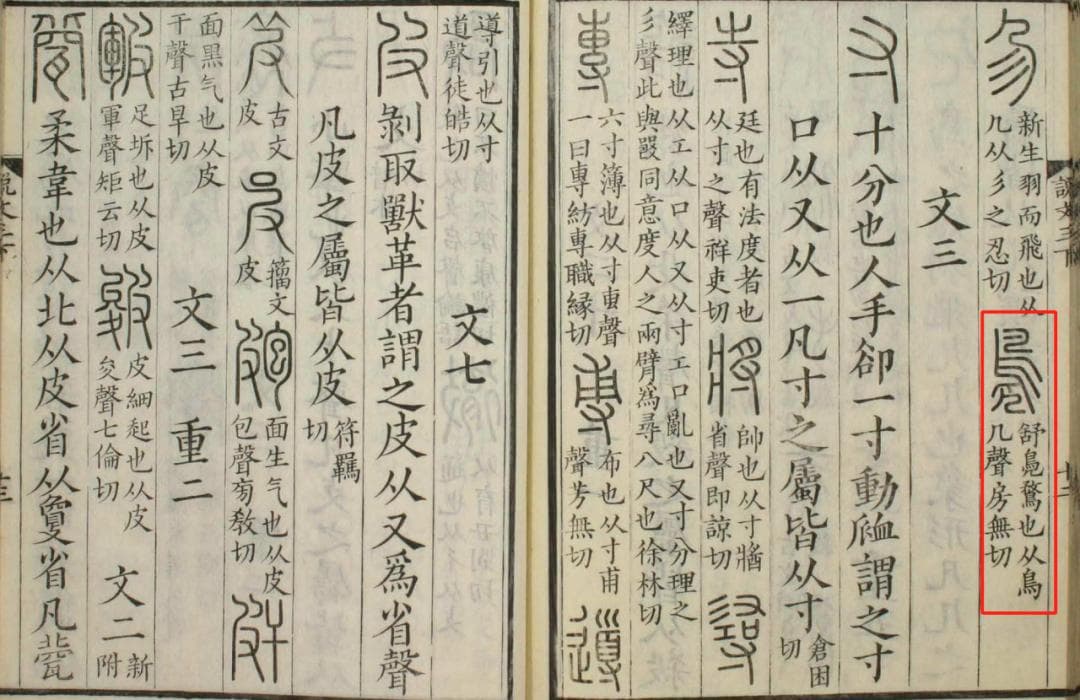 㐱 新生羽而飛也从
几从彡之忍切
鳧 舒鳧鶩也从鳥
几聲房無切
文三
寸 十分也人手卻一寸動𧖴謂之寸
口从又从一凡寸之屬皆从寸 倉困切
寺 廷也有法度者也
从寸之聲祥吏切
將 帥也从寸𤖅
省聲即諒切
𢒫
繹理也从工从口从又从寸工口亂也又寸分理之
彡聲此與𤕦同意度人之兩臂爲尋八尺也徐林切
專 六寸簿也从寸叀聲
一曰專紡專職緣切
尃 布也从寸甫
聲芳無切
導
導引也从寸
道聲徒皓切
文七
皮 剝取獸革者謂之皮从又爲省聲
凡皮之屬皆从皮 符羈切
古文
皮
籒文
皮
皰 面生气也从皮
包聲㫄教切
皯
面黑气也从皮
干聲古旱切
文三 重二
皸 足坼也从皮
軍聲矩云切
皴 皮細起也从皮
夋聲七倫切
文二 新附
㼱 柔韋也从北从皮省从夐省凡㼱